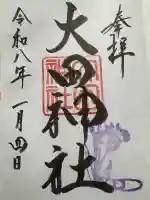 奉拝
大田神社
令和八年一月四日